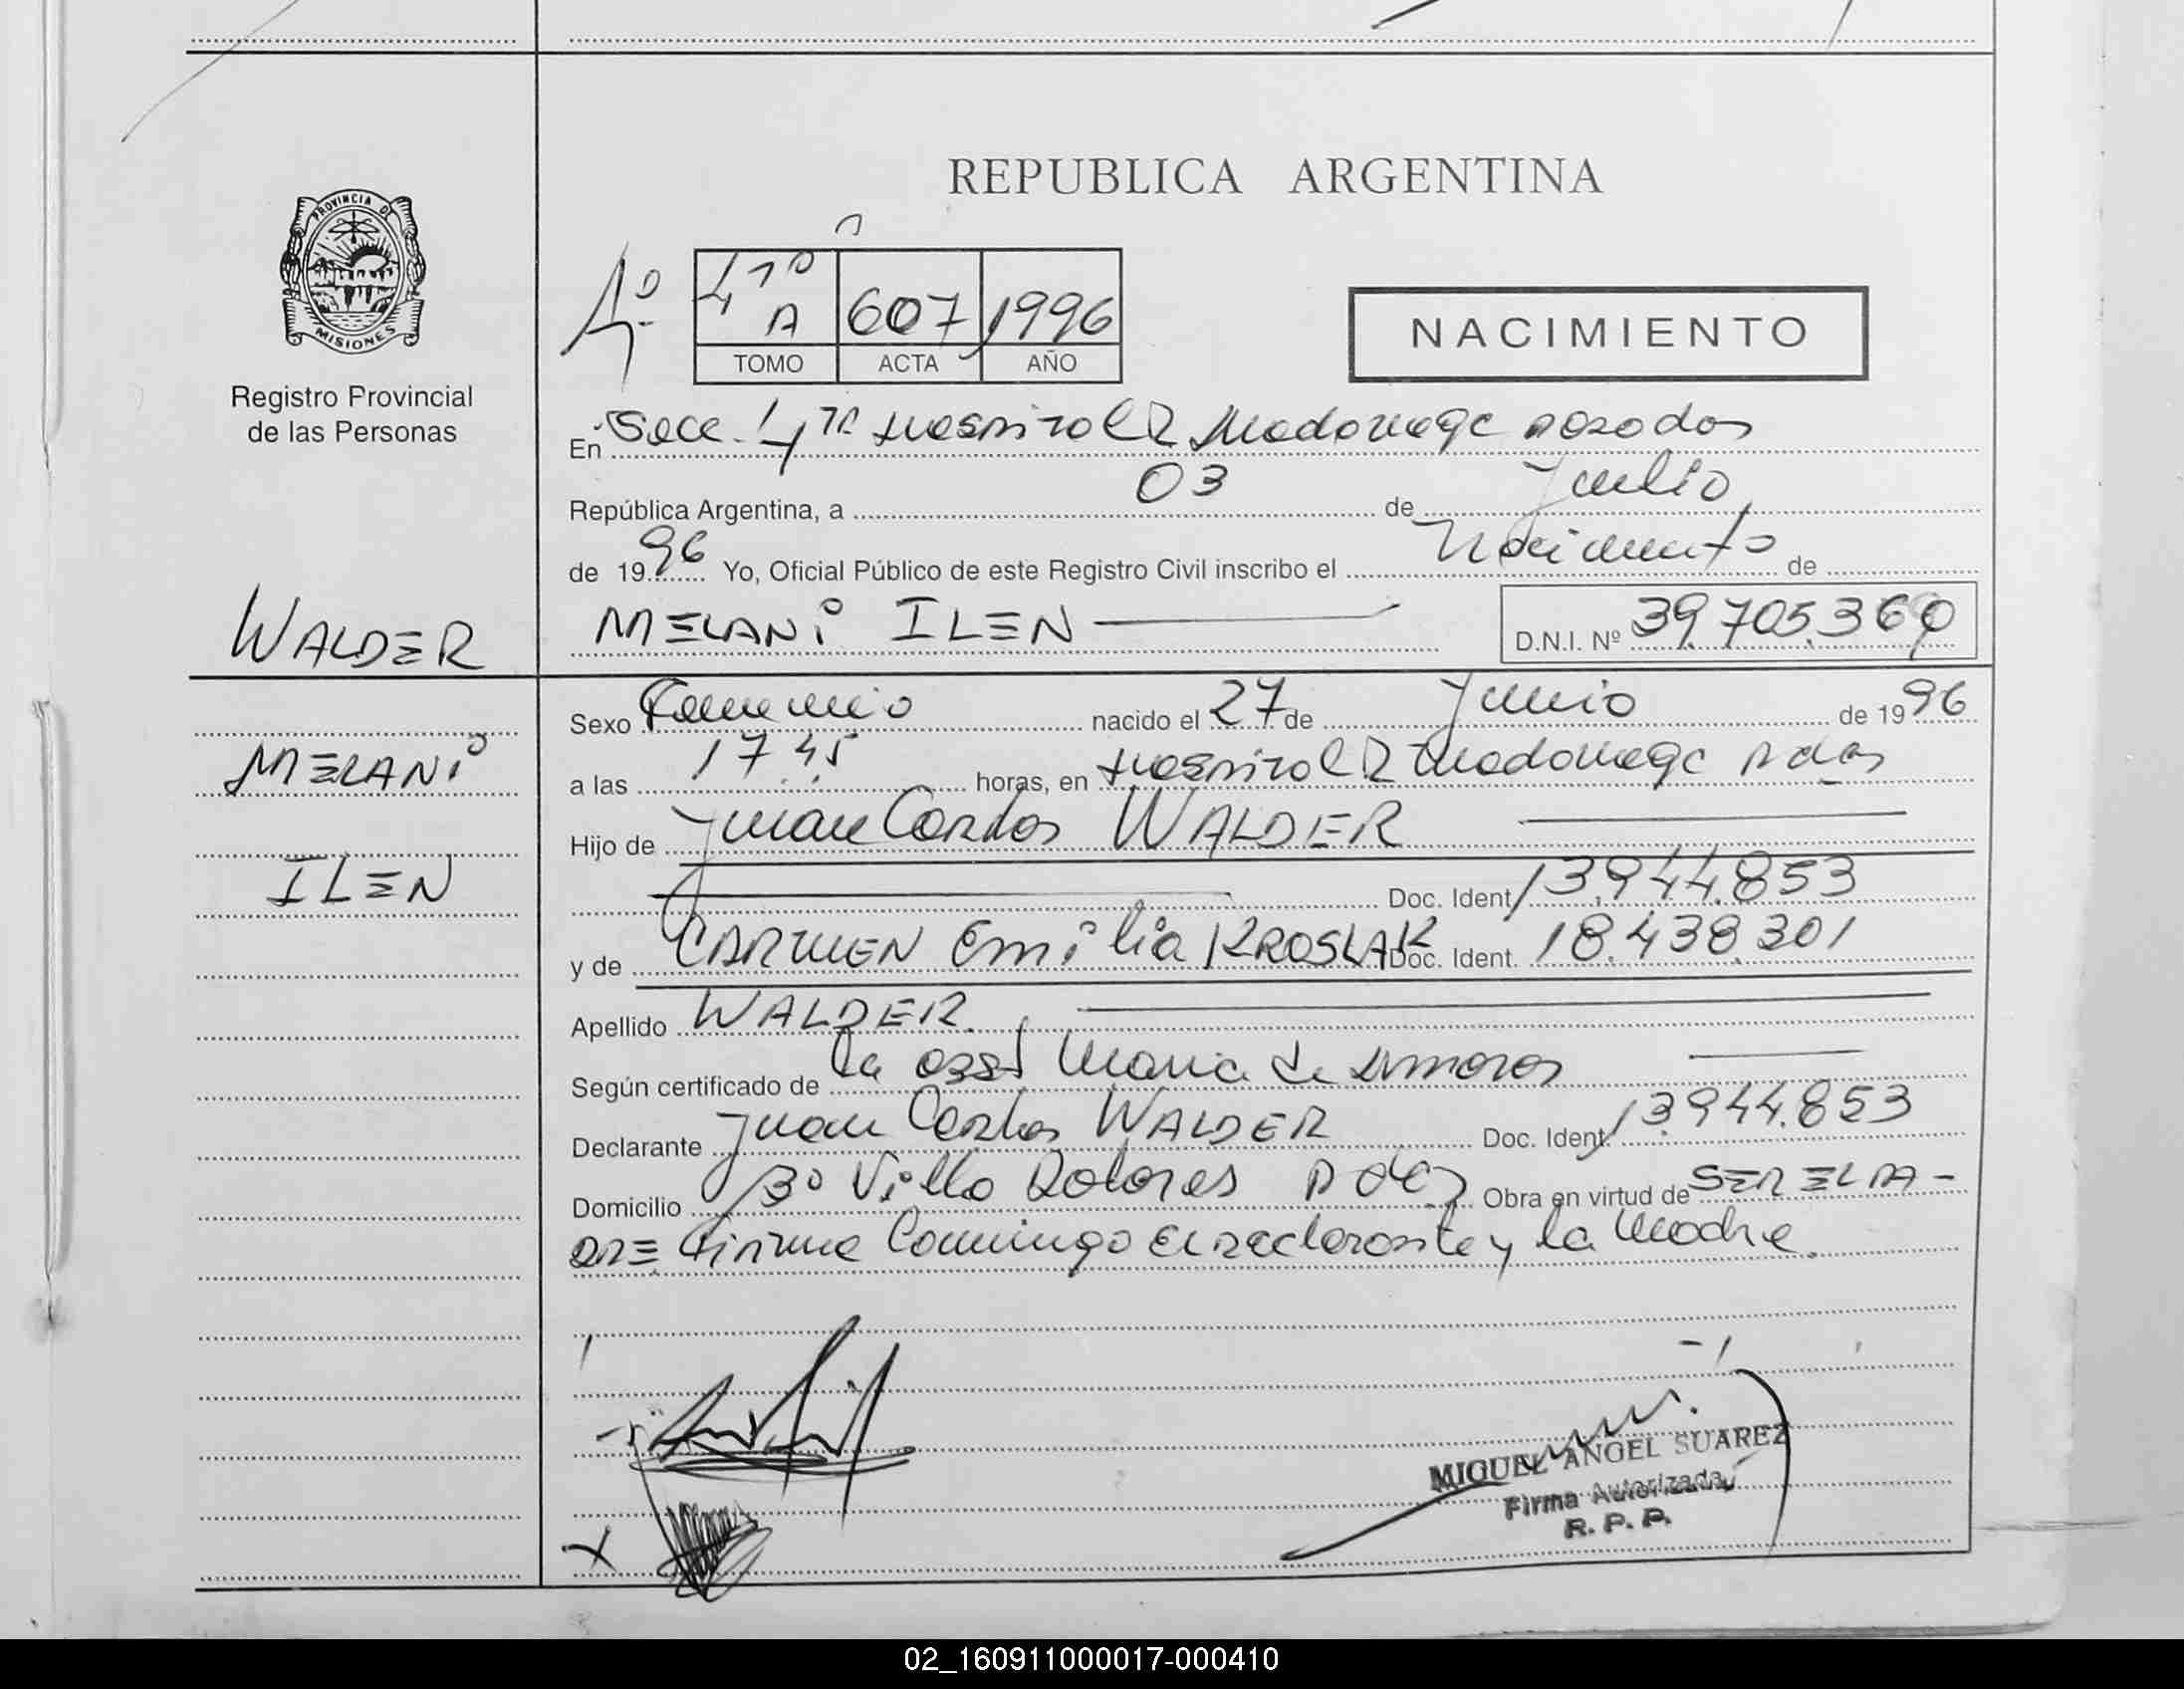 REPUBLICA ARGENTINA
PROVINCIA DE
MISIONES
Registro Provincial
de las Personas
4º
4º
A
607
1996
TOMO
ACTA
AÑO
NACIMIENTO
En Secc. 4ta Hospital R Madariaga Posadas
República Argentina, a 03 de Julio
de 1996 Yo, Oficial Público de este Registro Civil inscribo el Nacimiento de
WALDER
MELANi ILEN
D.N.I. Nº 39.705.369
MELANi
ILEN
Sexo Femenino nacido el 27 de Junio de 1996
a las 17.45 horas, en Hospital R Madariaga Pdas
Hijo de Juan Carlos WALDER
Doc. Ident. 13.944.853
y de CARMEN Emilia KROSLAK Doc. Ident. 18.438.301
Apellido WALDER
Según certificado de la Obst Maria de
Declarante Juan Carlos WALDER Doc. Ident. 13.944.853
Domicilio Bº Villa Dolores Pdas Obra en virtud de SER EL PA-
DRE Firma Conmigo El Declarante y la Madre.
MIGUEL ANGEL SUAREZ
Firma Autorizada
R. P. P.
02_160911000017-000410